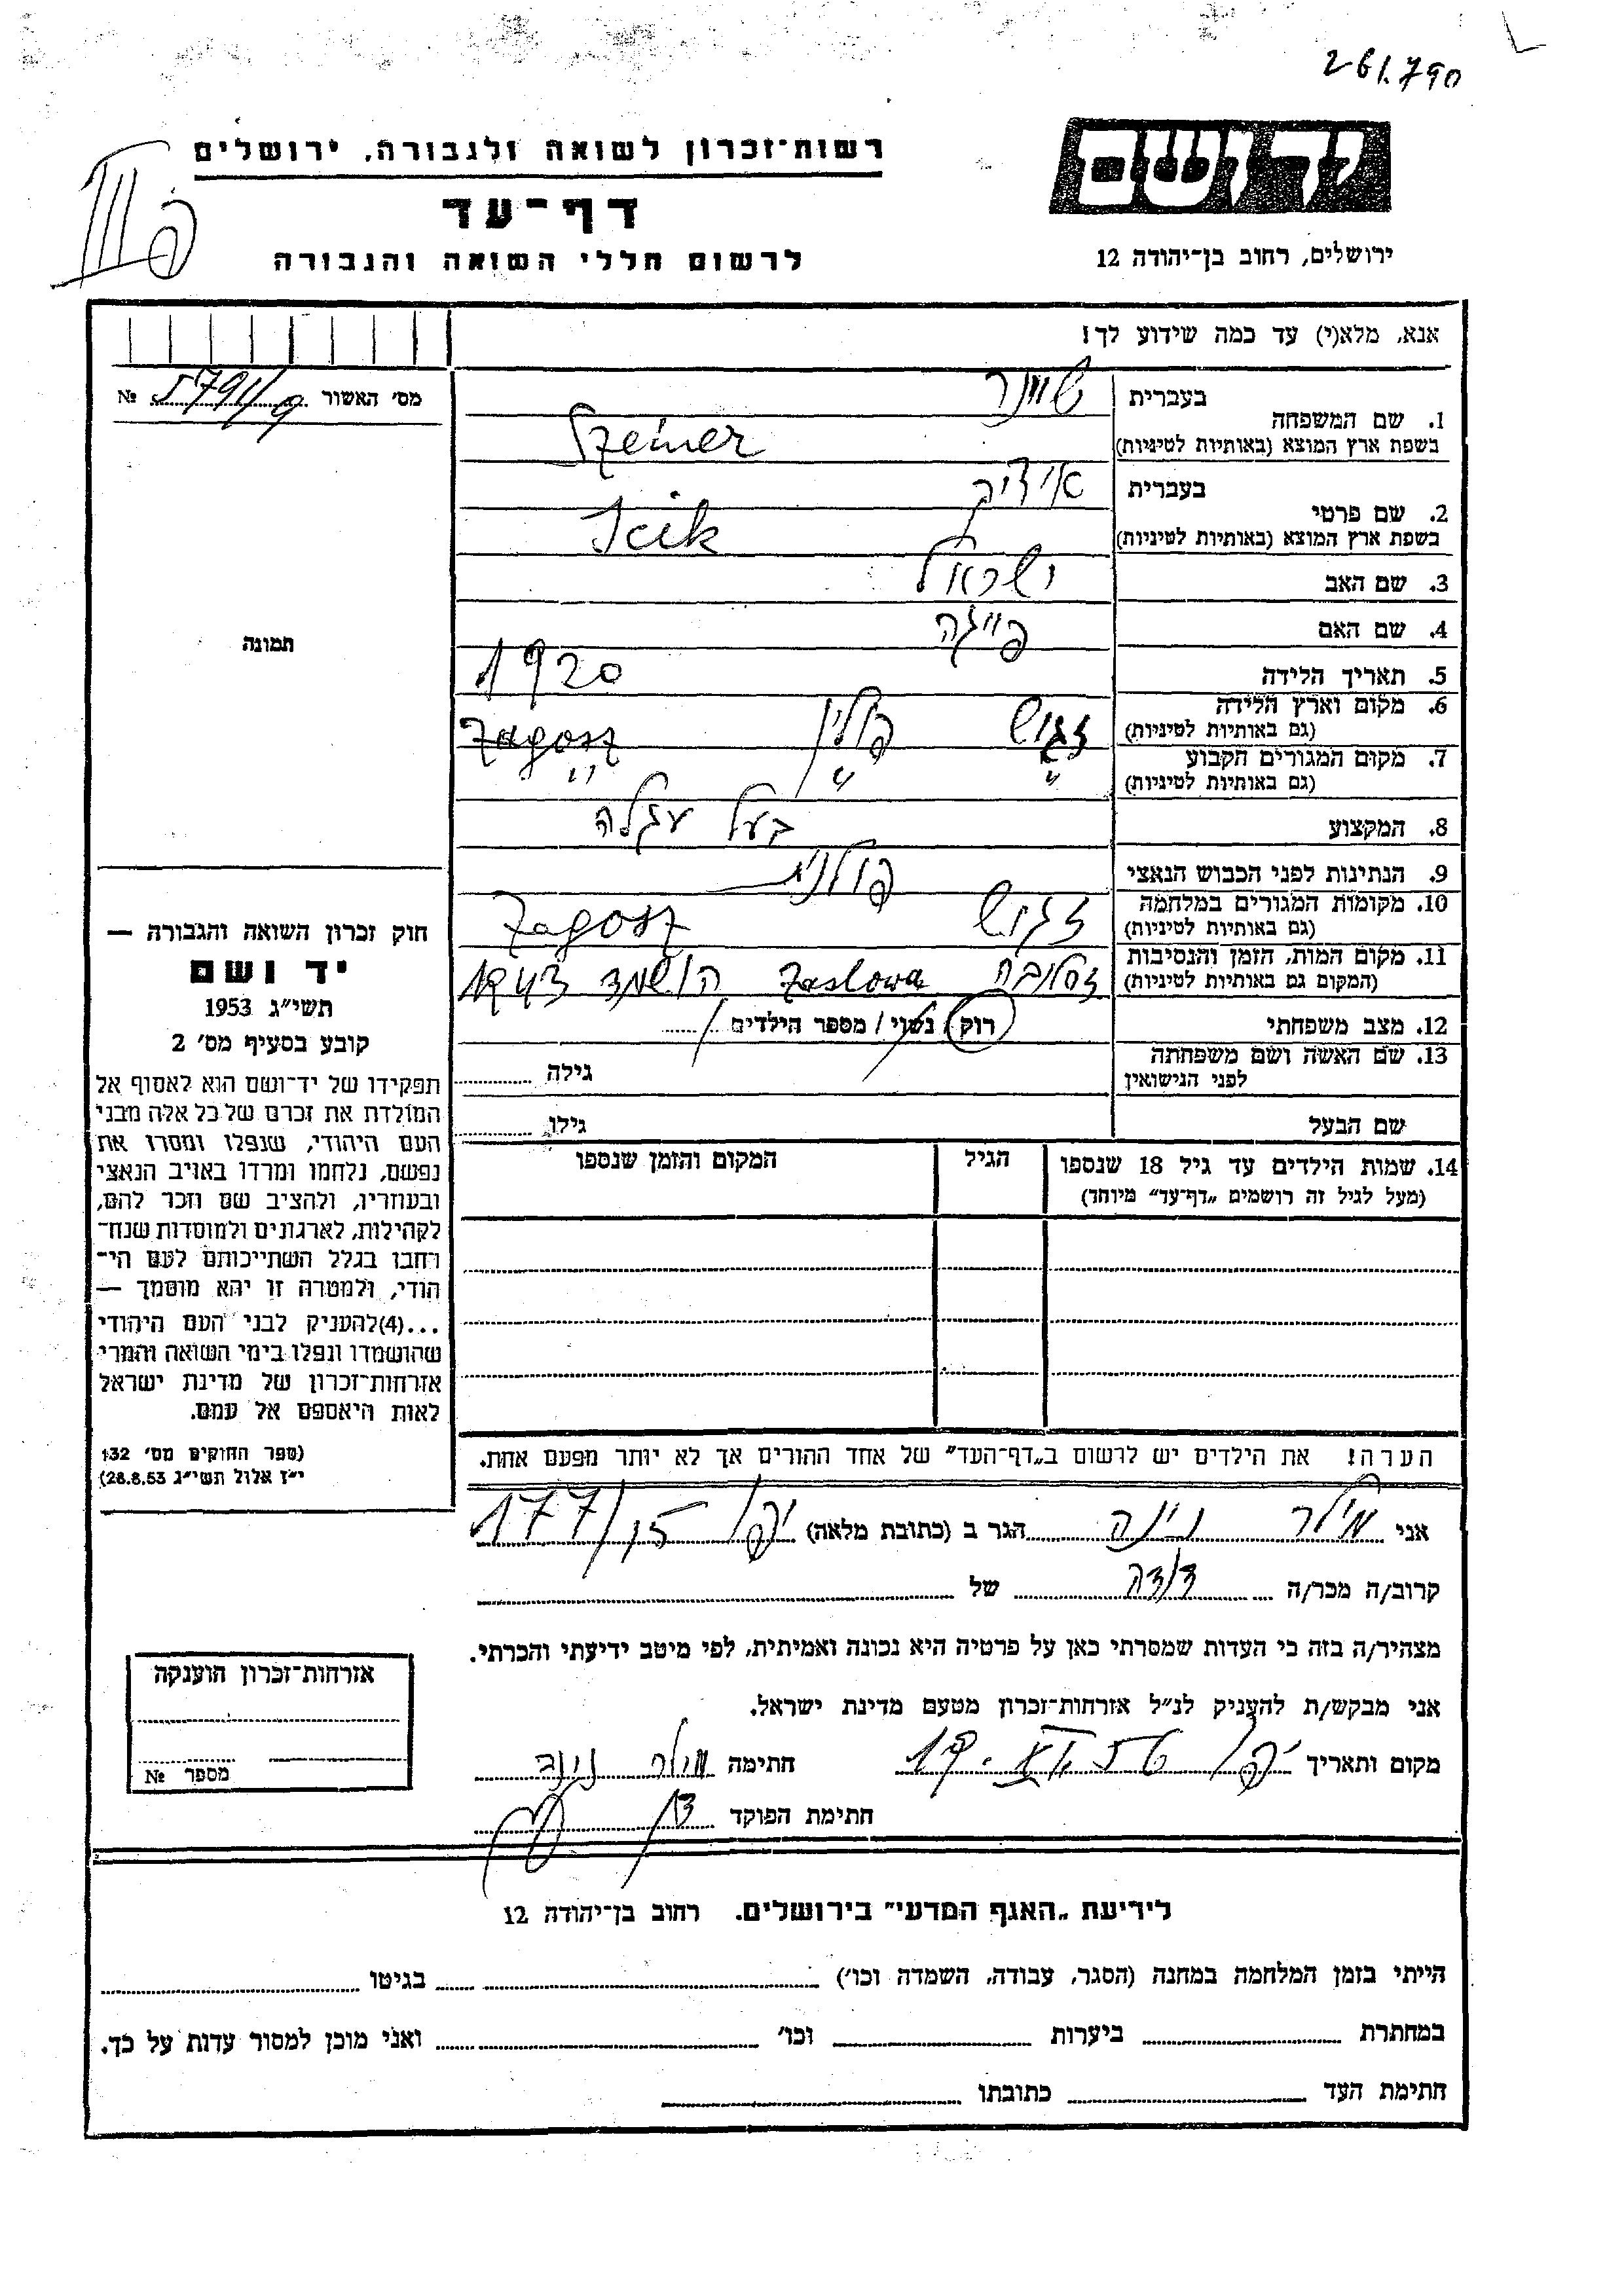 261.790
יד ושם
ירושלים, רחוב בן־יהודה 12
רשות־זכרון לשואה ולגבורה, ירושלים
דף־עד
לרשום חללי השואה והגבורה
אנא, מלא(י) עד כמה שידוע לך!
מס' האשור № 5791/9
1. שם המשפחה בעברית שיינר
בשפת ארץ המוצא (באותיות לטיניות) Szeiner
2. שם פרטי בעברית איציק
בשפת ארץ המוצא (באותיות לטיניות) Icik
3. שם האב ישראל
4. שם האם פייגה
5. תאריך הלידה 1920
6. מקום וארץ הלידה (גם באותיות לטיניות) זגוש פולין Zagosz
7. מקום המגורים הקבוע (גם באותיות לטיניות) " " "
8. המקצוע בעל עגלה
9. הנתינות לפני הכבוש הנאצי פולנית
10. מקומות המגורים במלחמה (גם באותיות לטיניות) זגוש Zagosz
11. מקום המות, הזמן והנסיבות (המקום גם באותיות לטיניות) זסלובה Zaslowa הושמד
12. מצב משפחתי רוק / נשוי / מספר הילדים
13. שם האשה ושם משפחתה לפני הנישואין גילה
שם הבעל גילו
14. שמות הילדים עד גיל 18 שנספו (מעל לגיל זה רושמים „דף־עד" מיוחד) הגיל המקום והזמן שנספו
הערה! את הילדים יש לרשום ב„דף־העד" של אחד ההורים אך לא יותר מפעם אחת.
תמונה
חוק זכרון השואה והגבורה —
יד ושם
תשי"ג 1953
קובע בסעיף מס' 2
תפקידו של יד־ושם הוא לאסוף אל
המולדת את זכרם של כל אלה מבני
העם היהודי, שנפלו ומסרו את
נפשם, נלחמו ומרדו באויב הנאצי
ובעוזריו, ולהציב שם וזכר להם,
לקהילות, לארגונים ולמוסדות שנח־
רחבו בגלל השתייכותם לעם הי־
הודי, ולמטרה זו יהא מוסמך —
...(4)להעניק לבני העם היהודי
שהושמדו ונפלו בימי השואה והמרי
אזרחות־זכרון של מדינת ישראל
לאות היאספם אל עמם.
(ספר החוקים מס' 132
י"ז אלול תשי"ג 28.8.53)
אני מילר נינה הגר ב (כתובת מלאה) יפו 177/
קרוב/ה מכר/ה דודה של
מצהיר/ה בזה כי העדות שמסרתי כאן על פרטיה היא נכונה ואמיתית, לפי מיטב ידיעתי והכרתי.
אני מבקש/ת להעניק לנ"ל אזרחות־זכרון מטעם מדינת ישראל.
מקום ותאריך יפו חתימה מילר נינה
חתימת הפוקד
אזרחות־זכרון הוענקה
מספר №
לידיעת „האגף המדעי" בירושלים. רחוב בן־יהודה 12
הייתי בזמן המלחמה במחנה (הסגר, עבודה, השמדה וכו') בגיטו
במחתרת ביערות וכו' ואני מוכן למסור עדות על כך.
חתימת העד כתובתו